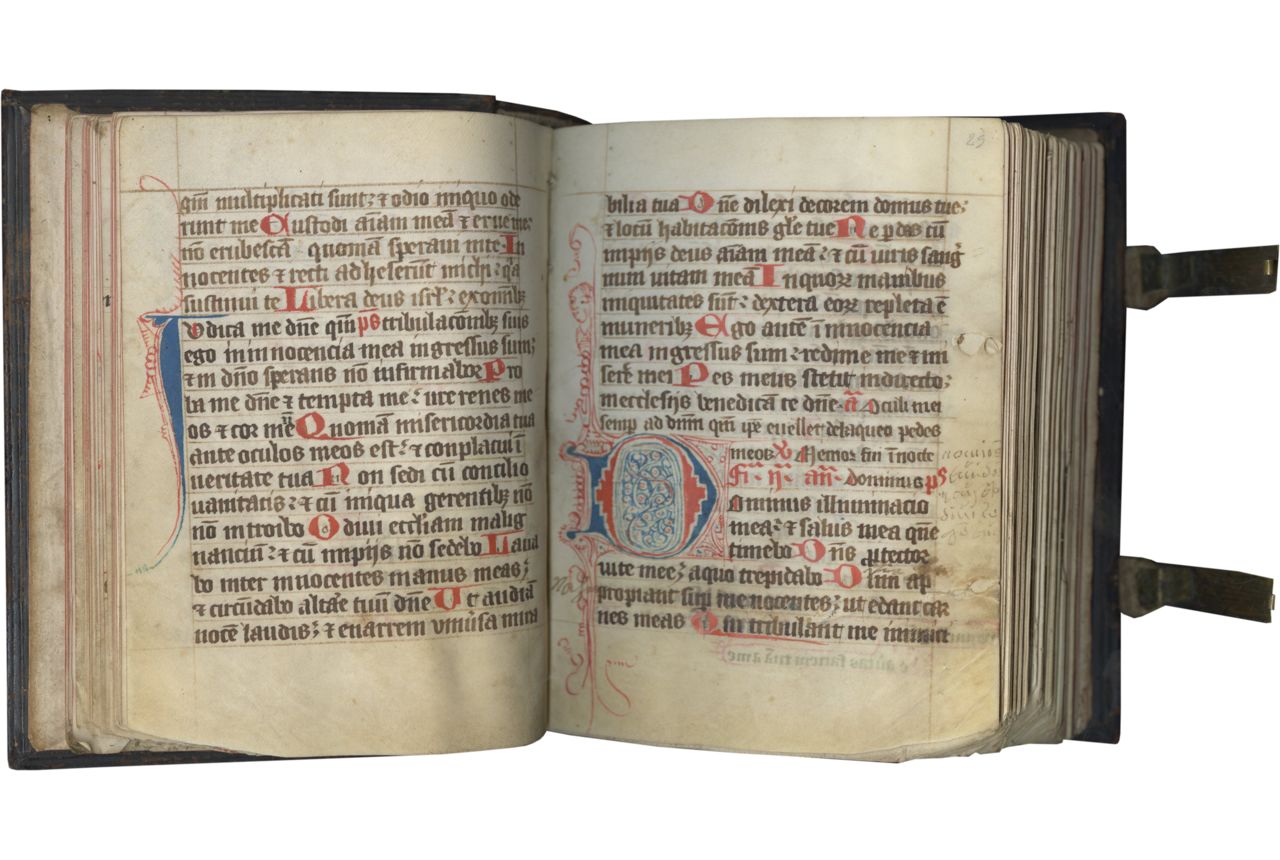 qm̄ multiplicati sunt; ⁊ odio iniquo ode
runt me Custodi aīam meā ⁊ erue me:
nō erubescā quoniā speraui in te In
nocentes ⁊ recti adheserunt michi: q̄a
sustinui te Libera deus isrl̄: ex om̄ibꝫ
Iudica me dn̄e qm̄ ps tribulacōnibꝫ suis
ego in innocencia mea ingressus sum;
⁊ in dn̄o sperans nō infirmabor Pro
ba me dn̄e ⁊ tempta me: ure renes me
os ⁊ cor meū Quoniā misericordia tua
ante oculos meos est: ⁊ conplacui ī
ueritate tua Non sedi cū concilio
uanitatis: ⁊ cū iniqua gerentibꝫ nō
nō introibo Odiui eccl̄iam malig
nanciū: ⁊ cū impijs nō sedebo Laua
bo inter innocentes manus meas;
⁊ circūdabo altāre tuū dn̄e Ut audiā
uocē laudis; ⁊ enarrem uniūsa mira
25
bilia tua Dn̄e dilexi decorem domus tue;
⁊ locū habitacōnis gl̄e tue Ne perdas cū
impijs deus aīam meā: ⁊ cū uiris sang̛
num uitam meā In quorꝫ manibus
iniquitates sūt: dextera eorꝫ repleta ē
muneribꝫ Ego autē ī innocencia
mea ingressus sum: redime me ⁊ mi
serē mei Pes meus stetit in directo;
in ecclesijs benedicā te dn̄e. a Oculi mei
semp ad dnm̄ qm̄ ip̄e euellet de laqueo pedes
meos v Memor fui ī nocte
Fr̄ ij an̄ Dominus ps
Dominus illuminacio
mea: ⁊ salus mea que
timebo Dn̄s ꝓtector
uite mee; a quo trepidabo Dum ap
propiant sup̄ me nocentes; ut edant car
nes meas Qui tribulant me inimici